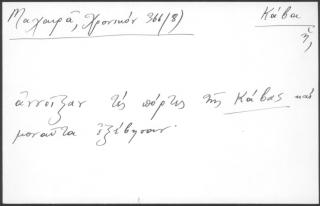 Μαχαιρᾶ, Χρονικόν 366(8)
Κάβα
ἡ,
ἄννοιξαν τὲς πόρτες τῆς Κάβας καὶ
μοναῦτα ἐξέβησαν·